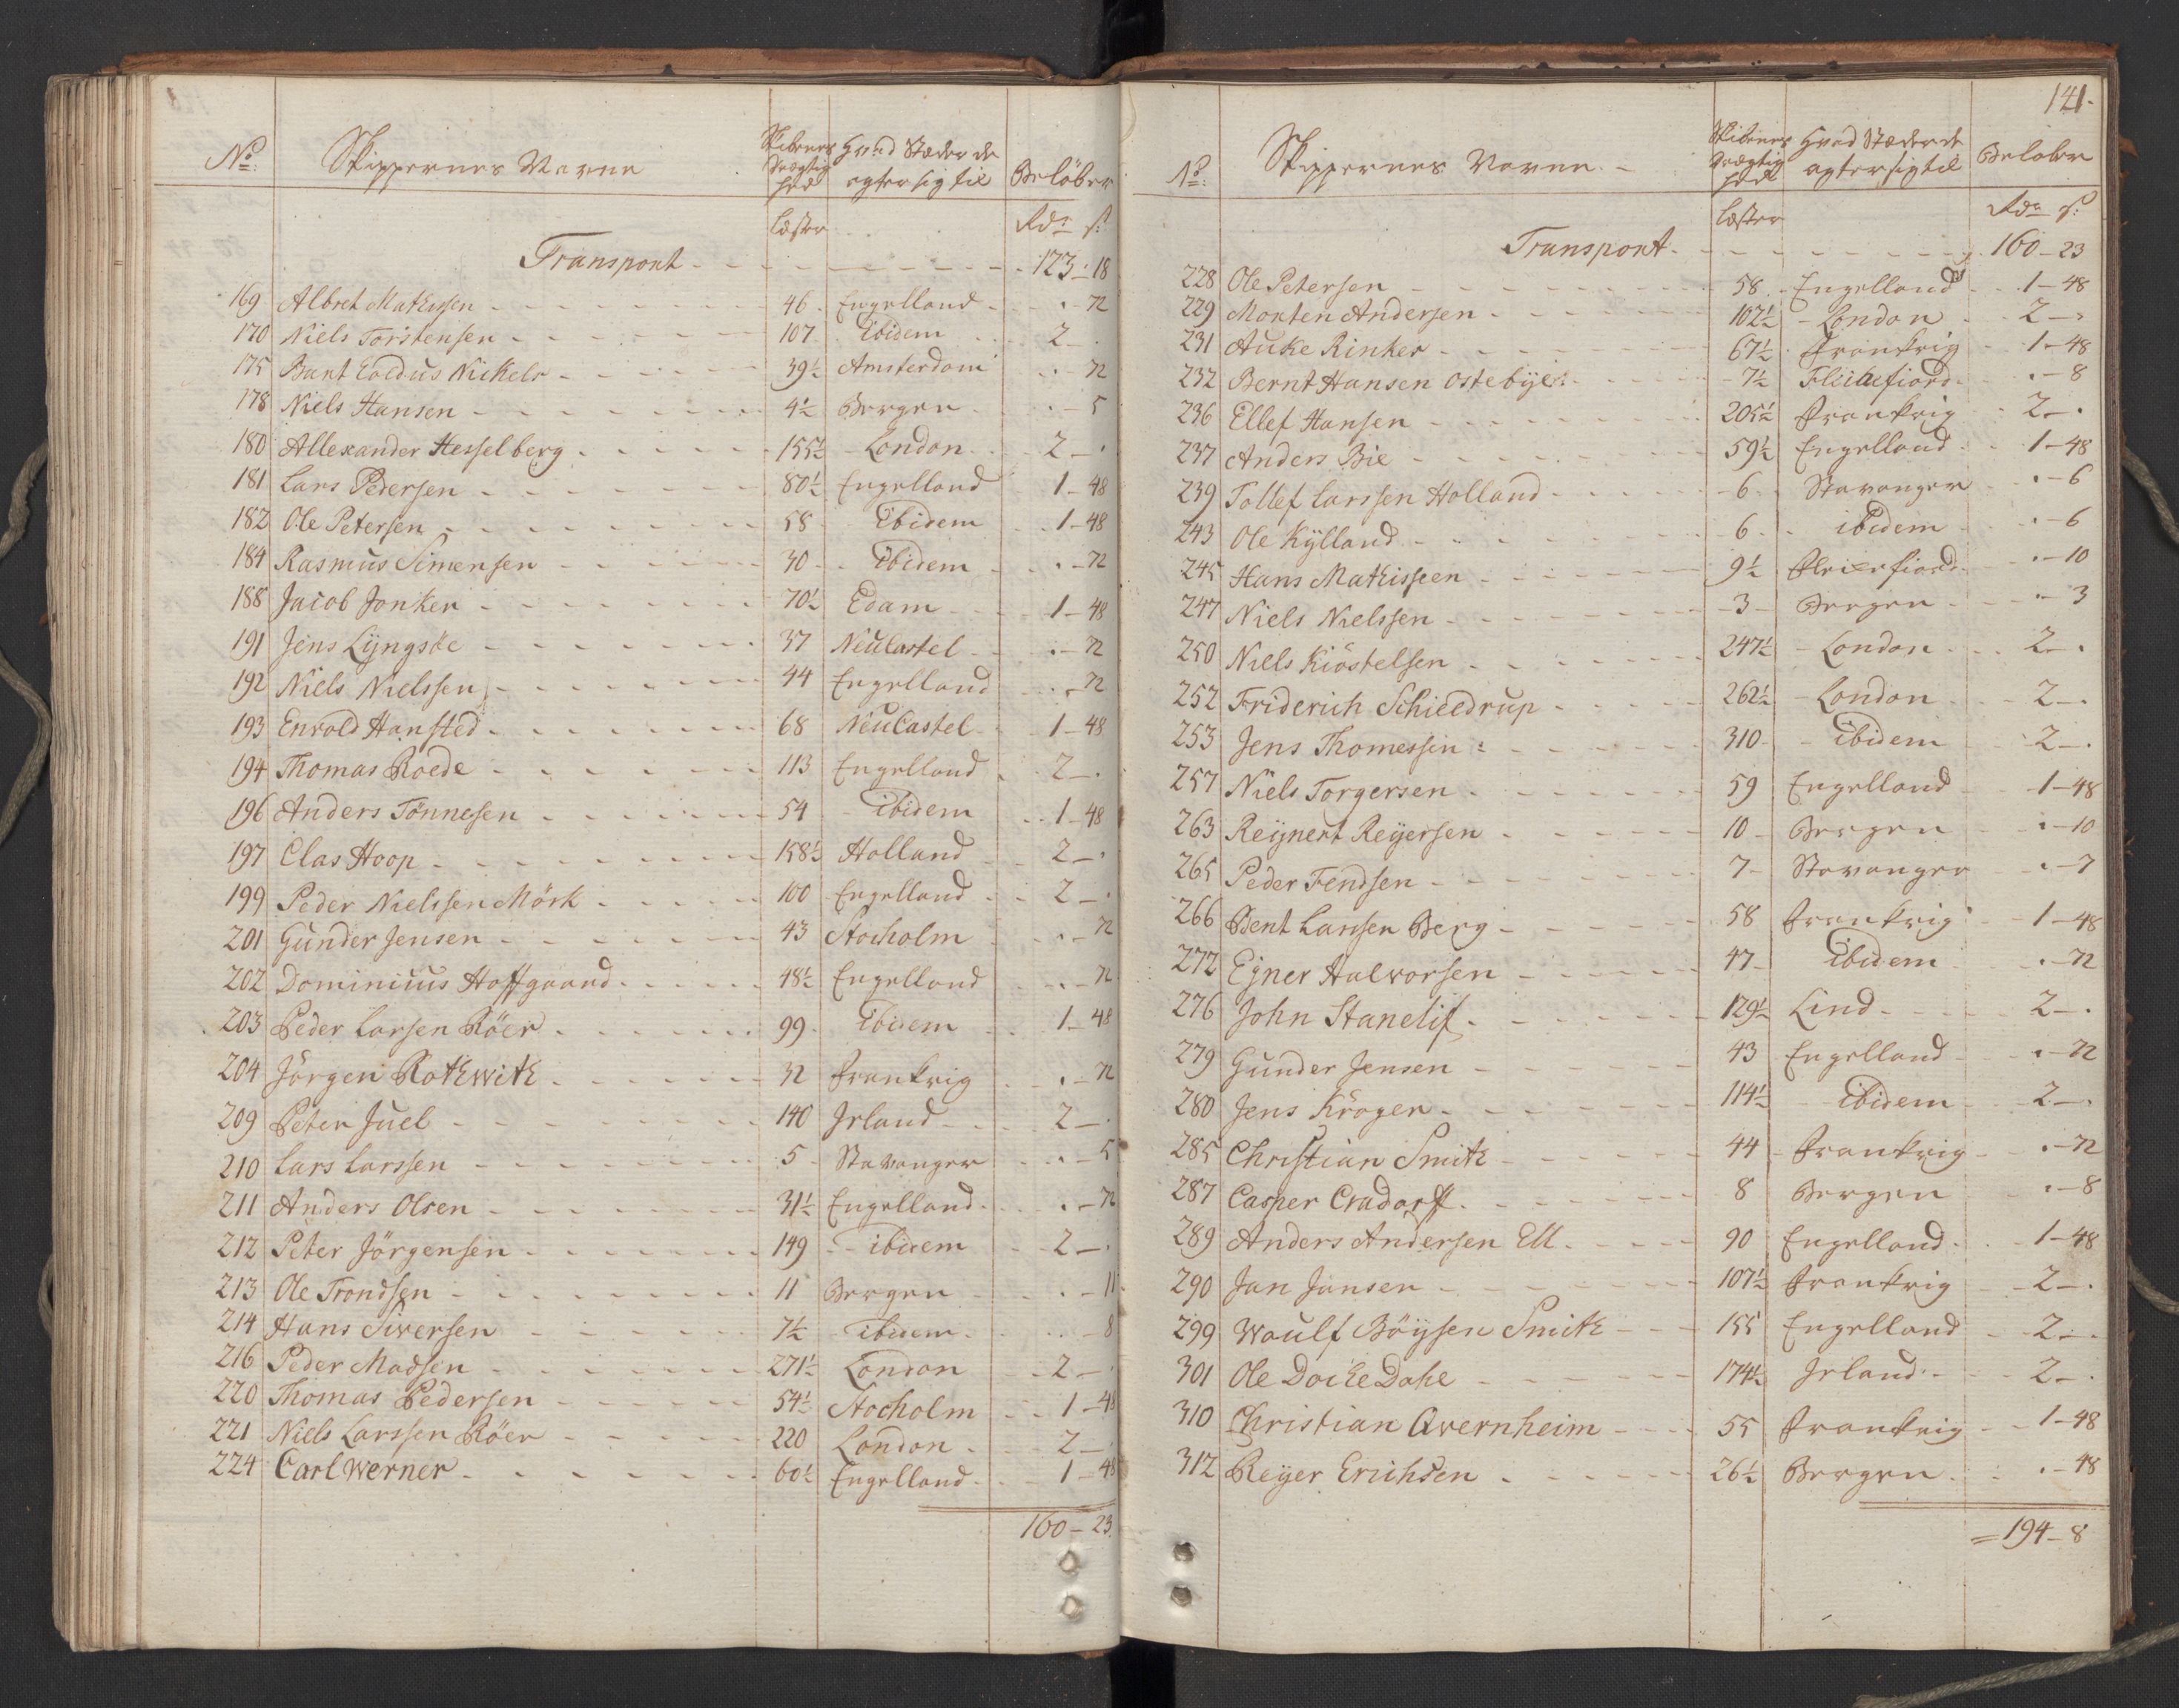 No. Skippernes Navne Skibenes Drægtighed Hvad Stæder de agter sig til Beløber
Læster Rdr ß:
Transport 123 - 18
169 Albret Mathissen 46 Engelland . - 72
170 Niels Torstensen 107 Ibidem 2 - .
175 Bant Eoldus Nickels 39½ Amsterdam . - 72
178 Niels Hansen 4½ Bergen . - 5
180 Allexander Hesselberg 155½ London 2 - .
181 Lars Pedersen 80½ Engelland 1 - 48
182 Ole Petersen 58 Ibidem 1 - 48
184 Rasmus Simensen 30 Ibidem . - 72
188 Jacob Jonker 70½ Edam 1 - 48
191 Jens Lyngsöe 37 NeuCastel . - 72
192 Niels Nielssen 44 Engelland . - 72
193 Envold Hansted 68 NeuCastel 1 - 48
194 Thomas Roede 113 Engelland 2 - .
196 Anders Tönnesen 54 ibidem 1 - 48
197 Clas Hoop 158½ Holland 2 - .
199 Peder Nielssen Mörk 100 Engelland 2 - .
201 Gunder Jensen 43 Stocholm . - 72
202 Dominicus Hoffgaard 48½ Engelland . - 72
203 Peder Larsen Röer 99 Ibidem 1 - 48
204 Jörgen Rothwith 32 Frankrig . - 72
209 Peter Juel 140 Jrland 2 - .
210 Lars Larssen 5 Stavanger . - 5
211 Anders Olsen 31½ Engelland . - 72
212 Peter Jörgensen 149 ibidem 2 - .
213 Ole Trondsen 11 Bergen . - 11
214 Hans Siversen 7½ ibidem . - 8
216 Peder Madsen 271½ London 2 - .
220 Thomas Pedersen 54½ Stocholm 1 - 48
221 Niels Larssen Röer 220 London 2 - .
224 Carl Werner 60½ Engelland 1 - 48
160 - 23
141.
No. Skippernes Navne Skibenes Drægtighed Hvad Stæder de agter sig til Beløber
Læster Rdr ß:
Transport 160 - 23
228 Ole Petersen 58 Engelland 1 - 48
229 Morten Andersen 102½ London 2 - .
231 Auke Rinker 67½ Frankrig 1 - 48
232 Bernt Hansen Ostebye 7½ Flekkefiord . - 8
236 Ellef Hansen 205½ Frankrig 2 - .
237 Anders Bie 59½ Engelland 1 - 48
239 Tollef Larssen Holland 6 Stavanger . - 6
243 Ole Kylland 6 ibidem . - 6
245 Hans Mathissen 9½ Fleckefiord . - 10
247 Niels Nielssen 3 Bergen . - 3
250 Niels Kiöstelsen 247½ London 2 - .
252 Friderich Schieldrup 262½ London 2 - .
253 Jens Thomessen 310 ibidem 2 - .
257 Niels Torgersen 59 Engelland 1 - 48
263 Reynert Reyersen 10 Bergen . - 10
265 Peder Fendsen 7 Stavanger . - 7
266 Bent Larssen Berg 58 Frankrig 1 - 48
272 Egner Halvorsen 47 Ibidem . - 72
276 John Stanelif 129½ Lind 2 - .
279 Gunder Jensen 43 Engelland . - 72
280 Jens Kröger 114½ ibidem 2 - .
285 Christian Smith 44 Frankrig . - 72
287 Casper Cradorff 8 Bergen . - 8
289 Anders Andersen Ell 90 Engelland 1 - 48
290 Jan Jansen 107½ Frankrig 2 - .
299 Woulf Böysen Smith 155 Engelland 2 - .
301 Ole Docke Dahl 174½ Jrland 2 - .
310 Christian Qvernheim 55 Frankrig 1 - 48
312 Reyer Erichsen 26½ Bergen . - 48
= 194 - 8